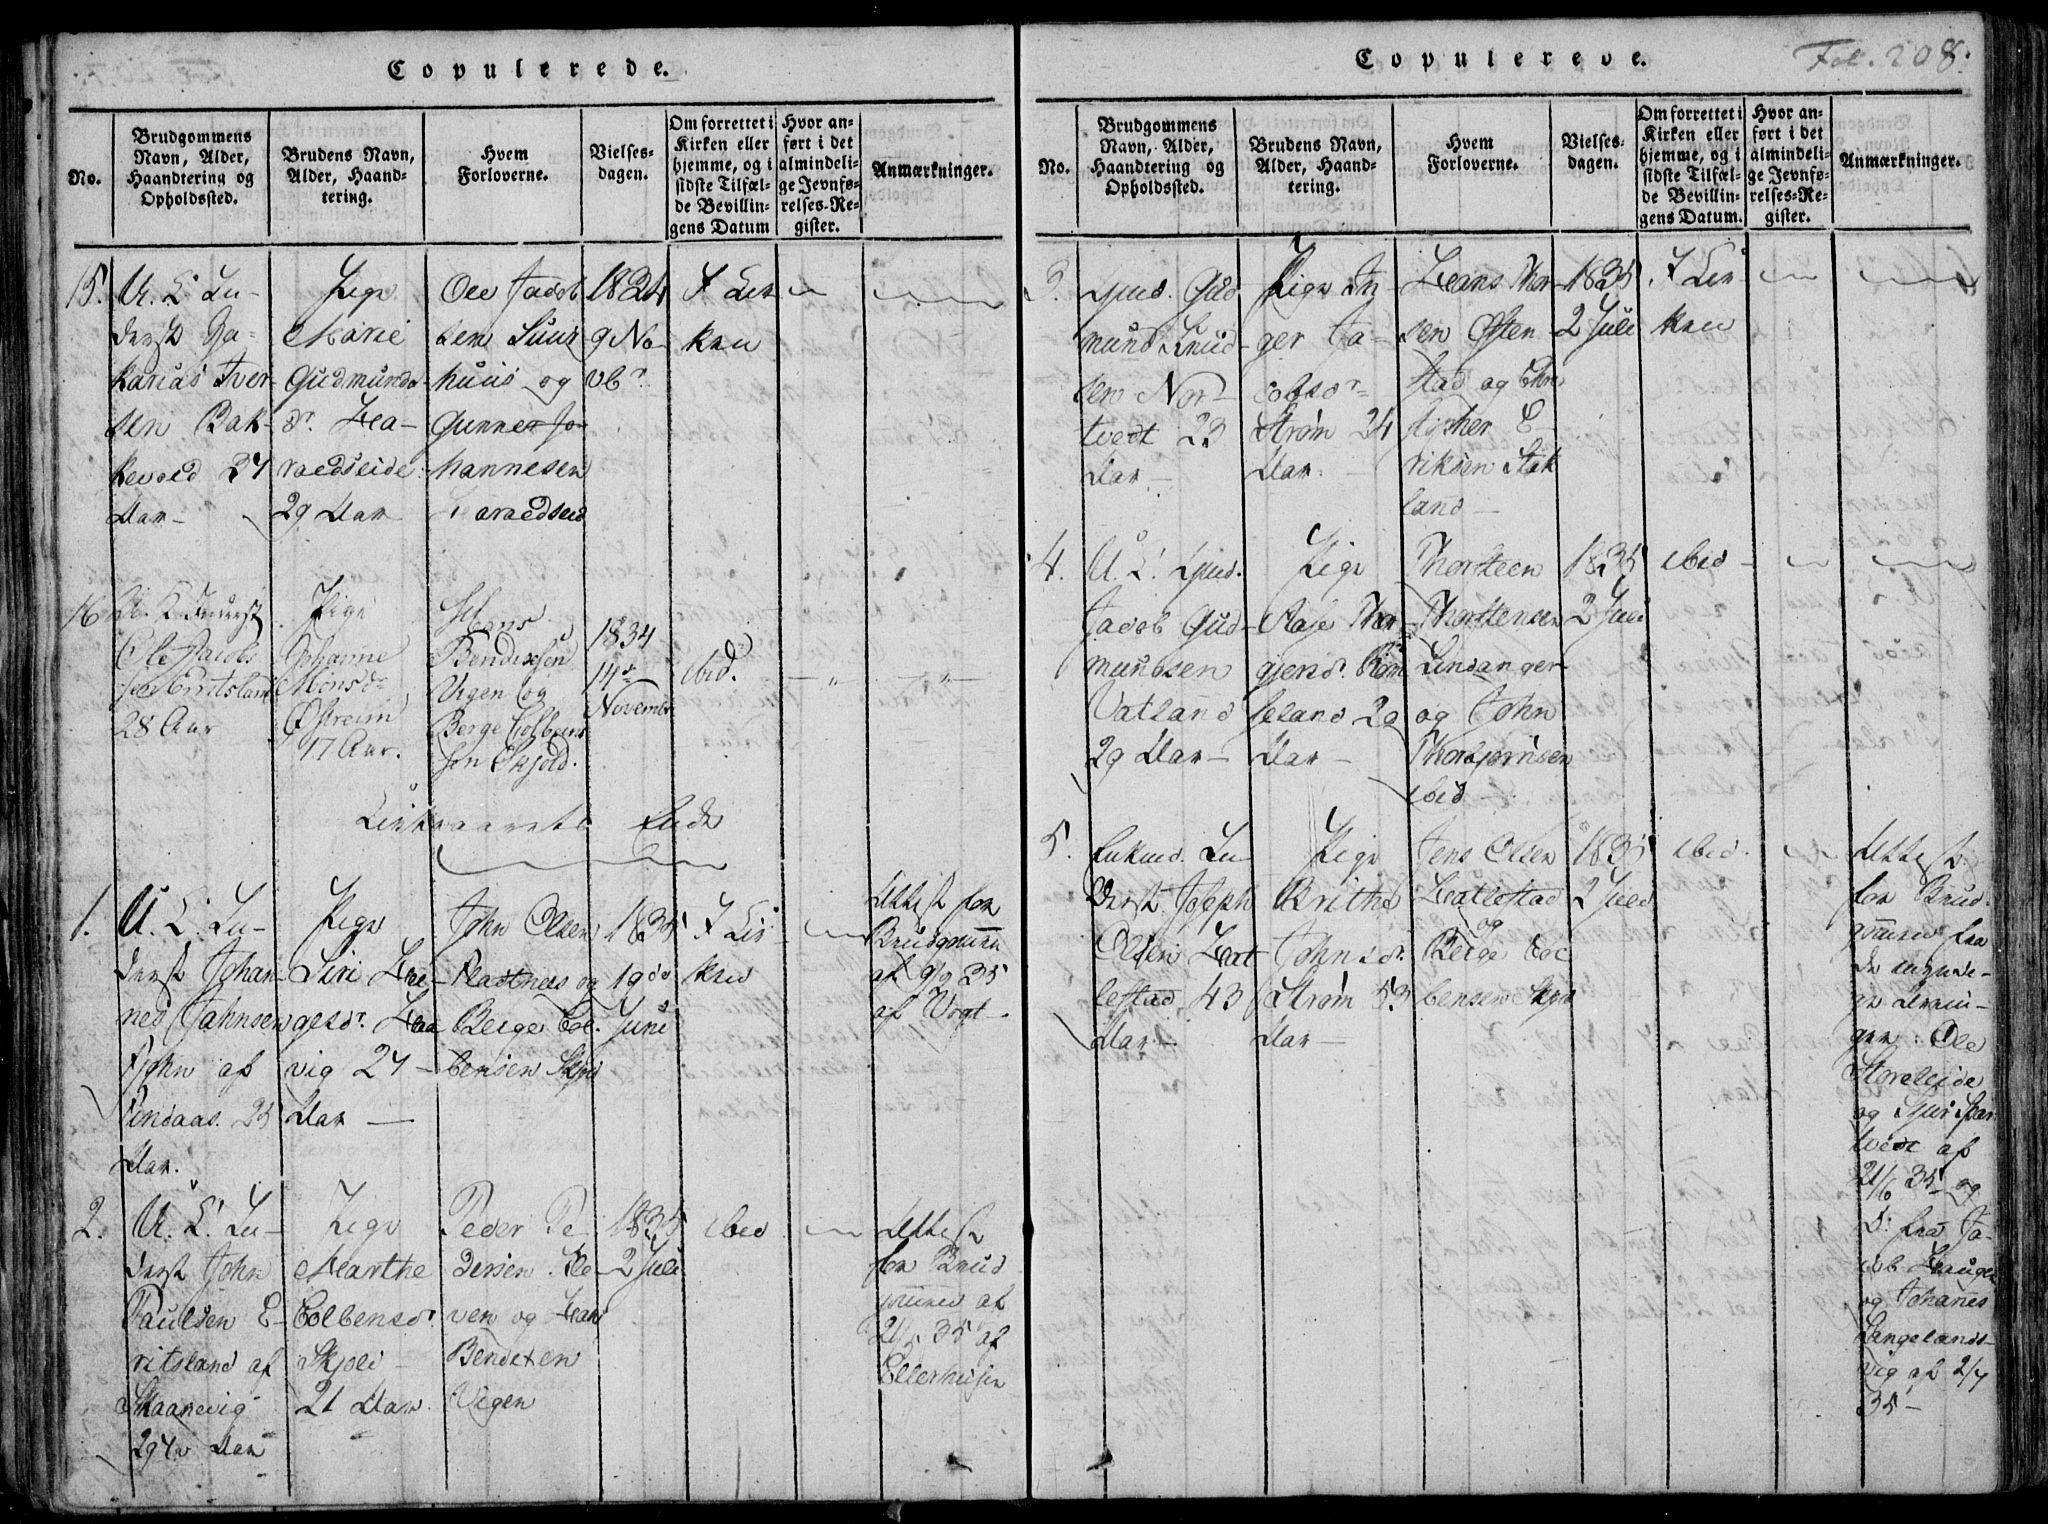 Copulerede.
No.
Brudgommens
Navn, Alder,
Haandtering og
Opholdssted.
Brudens Navn,
Alder, Haand-
tering.
Hvem
Forloverne.
Vielses-
dagen.
Om forrettet i
Kirken eller
hjemme, og i
sidste Tilfæl-
de Bevillin-
gens Datum
Hvor an-
ført i det
almindeli-
ge Jevnfø-
relses-Re-
gister.
Anmærkninger.
15.
U. K. Lu-
Zakarias Iver-
sen Bak-
kevold 27
Aar
Pige
Marie
Gudmunds
dr. Ha-
raldseide
29 Aar
Ole Jacob
sen Suur
huus og
Gunner Jo-
hannesen
Haraldseid
1834
9 No-
vbr
I Kir
ken
16
Ole Jacob
sen Eritsland
28 Aar
Pige
Johanne
Monsdr
Østreim
17 Aar.
Mons
Bendixsen
Vigen og
Berge Colbens
sen Skjold.
1834
14de
November
ibid.
Kirke aarets Ende
1.
U. K. Lu-
Johan-
nes Jahnsen
af
Vindaas. 25
Aar.
Pige
Siri Hel-
gesdr. Haa
vig 27
Aar
John Olsen
og
Berge Col-
bensen Skjold
1835
19de
Juni
I Kir
ken
Attest for
Brudgommen
af 35
af Vogt
2.
U. K. Lu-
John
Paulsen E-
ritsland af
Skaanevig
29 Aar
Pige
Marthe
Colbensdr.
Skjold
21 Aar
Peder Pe
dersen Kle-
ven og Hans
Bendixen
Vigen
1835
2 Juli
ibid
Attest
for Brud
gommen af
21/5 35 af
Ellerhusen
Copulerede.
Fol. 208.
No.
Brudgommens
Navn, Alder,
Haandtering og
Opholdssted.
Brudens Navn,
Alder, Haand-
tering.
Hvem
Forloverne.
Vielses-
dagen.
Om forrettet i
Kirken eller
hjemme, og i
sidste Tilfæl-
de Bevillin-
gens Datum.
Hvor an-
ført i det
almindeli-
ge Jevnfø-
relses-Re-
gister.
Anmærkninger.
3.
Gud
mund Knud-
sen Nor-
tvedt 23
Aar
Pige In
ger Ja-
cobsdr
Strøm 24
Aar
Hans Thor-
sen Østen
stad og Chri
stopher E-
riksen Stak
land
1835
2 Juli
I Kir
ken
4.
U. K.
Jacob Gud-
mundsen
Vatland
29 Aar
Pige
Aase Thor
Rom
seland 29
Aar
Thorsteen
Thorstensen
Lindanger
og John
Thorbjørnsen
ibid
1835
2 Juli
ibid
5.
Enkmd. Lu
Joseph
Olsen Hat
lestad 43
Aar
Pige
Britha
Johnsdr.
Strøm 53
Aar
Jens Olsen
Hatlestad
og
Berge Col
bensen Skjold
1835
2 Juli
ibid.
Attest
for Brud-
gommen fra
Ole
Storeleide
og
af
21/6 35 og
Do. fra Ja-
cob Haugen
og Johanes
Langelands-
vig af 2/7
35